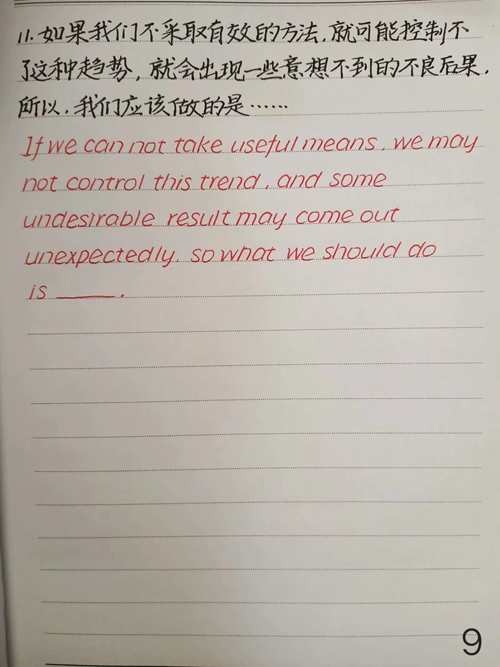 11. 如果我们不采取有效的方法，就可能控制不
了这种趋势，就会出现一些意想不到的不良后果，
所以，我们应该做的是……
If we can not take useful means, we may
not control this trend, and some
undesirable result may come out
unexpectedly. so what we should do
is ____.
9